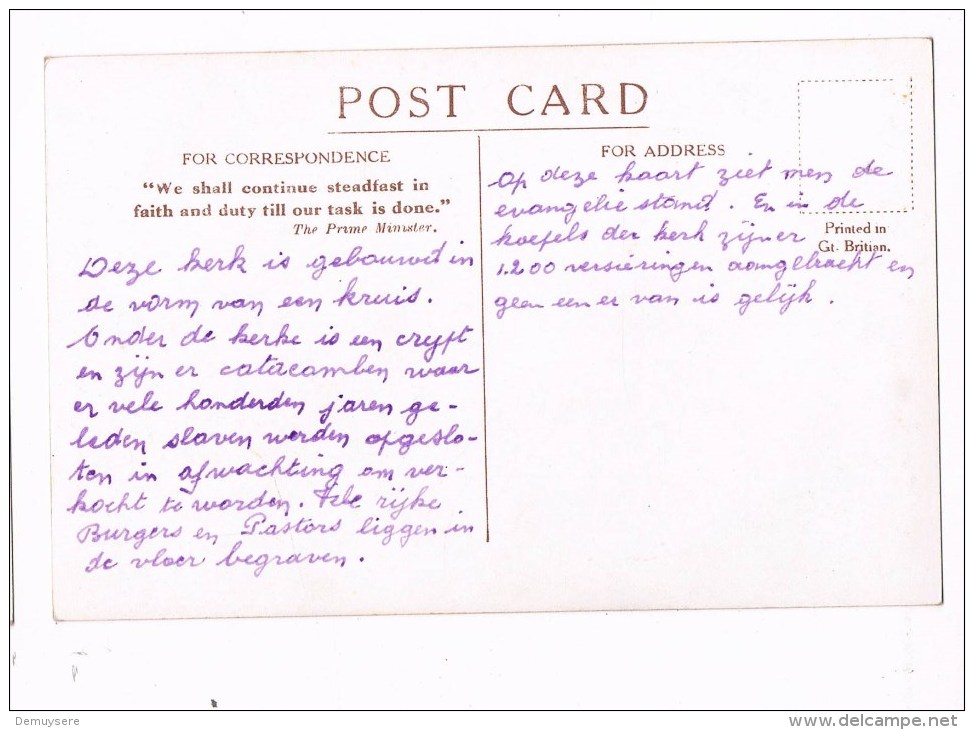 POST CARD
FOR CORRESPONDENCE
"We shall continue steadfast in
faith and duty till our task is done."
The Prime Minister.
Deze kerk is gebouwd in
de vorm van een kruis.
Onder de kerke is een crypt
en zijn er catacomben waar
er vele honderden jaren ge-
leden slaven werden opgeslo-
ten in afwachting om ver-
kocht te worden. Vele rijke
Burgers en Pastors liggen in
de vloer begraven.
FOR ADDRESS
Op deze kaart ziet men de
evangelie stand. En in de
koefels der kerk zijn er
1.200 versieringen aangebracht en
geen een er van is gelijk.
Printed in
Gt. Britian.
Demuysere
www.delcampe.net